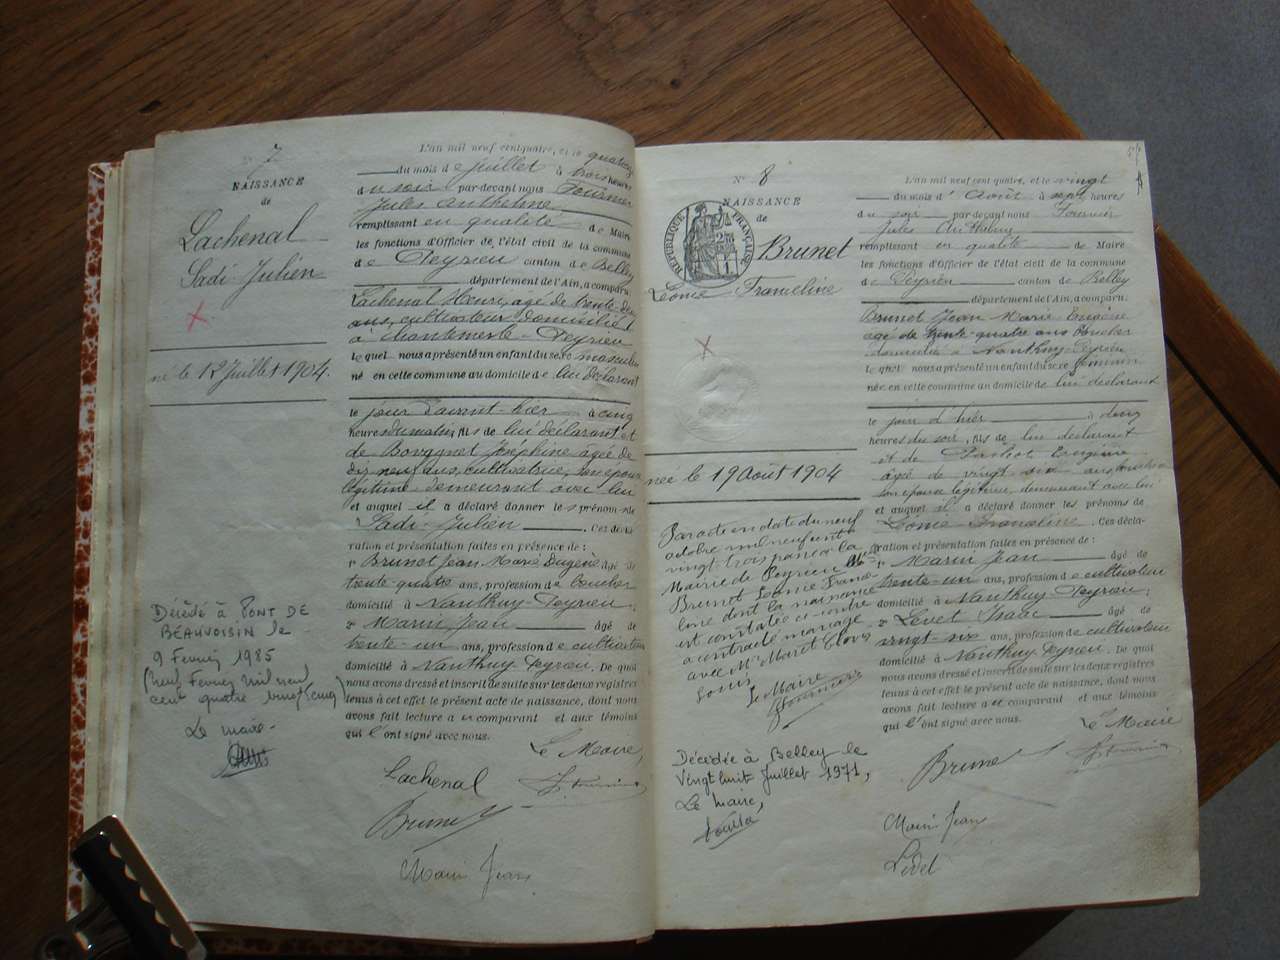 7
NAISSANCE
de
Lachenal
Sadi-Julien
né le 12 Juillet 1904.
Décédé à PONT DE
BEAUVOISIN le
9 Février 1985
(neuf Février mil neuf
cent quatre vingt cinq)
Le maire
L'an mil neuf cent quatre, et le quatorze
du mois de juillet à trois heures
du soir par-devant nous Fournier
Jules Anthelme
remplissant en qualité de Maire
les fonctions d'Officier de l'état civil de la commune
de Peyrieu canton de Belley
département de l'Ain, a comparu
Lachenal Henri, âgé de trente-deux
ans, cultivateur domicilié
à Chantemerle-Peyrieu
lequel nous a présenté un enfant du sexe masculin
né en cette commune au domicile de lui déclarant
le jour d'avant-hier à cinq
heures du matin, fils de lui déclarant et
de Joséphine âgée de
dix neuf ans, cultivatrice, son épouse
légitime demeurant avec lui
et auquel il a déclaré donner les prénoms de
Sadi-Julien. Ces décla-
ration et présentation faites en présence de :
1° Brunet Jean Marie Eugène âgé de
trente quatre ans, profession de boucher
domicilié à Nanthuy-Peyrieu;
2° Marin Jean âgé de
trente-un ans, profession de cultivateur
domicilié à Nanthuy Peyrieu. De quoi
nous avons dressé et inscrit de suite sur les deux registres
tenus à cet effet le présent acte de naissance, dont nous
avons fait lecture au comparant et aux témoins
qui l'ont signé avec nous.
Le Maire,
Lachenal
Brunet
Marin Jean
N° 8
NAISSANCE
de
RÉPUBLIQUE FRANÇAISE
Brunet
Léonie Franceline
née le 19 Août 1904
Par acte en date du neuf
octobre mil neuf cent
vingt trois passé à la
Mairie de Peyrieu
Brunet Léonie France-
line dont la naissance
est constatée ci-contre
a contracté mariage
avec Mr Moret Clovis
Louis
Le Maire
Décédée à Belley le
Vingt huit Juillet 1971,
Le maire,
L'an mil neuf cent quatre, et le vingt
du mois d'Août à sept heures
du soir par devant nous Fournier
Jules Anthelme
remplissant en qualité de Maire
les fonctions d'Officier de l'état civil de la commune
de Peyrieu canton de Belley
département de l'Ain, a comparu.
Brunet Jean Marie Eugène
âgé de trente-quatre ans boucher
domicilié à Nanthuy Peyrieu
lequel nous a présenté un enfant du sexe féminin
née en cette commune au domicile de lui déclarant
le jour d'hier à deux
heures du soir, fils de lui déclarant
et de Eugénie
âgée de vingt ans
son épouse légitime, demeurant avec lui
et auquel il a déclaré donner les prénoms de
Léonie-Franceline. Ces décla-
ration et présentation faites en présence de :
1° Marin Jean âgé de
trente-un ans, profession de cultivateur
domicilié à Nanthuy-Peyrieu;
2° Levet Isaac âgé de
vingt-six ans, profession de cultivateur
domicilié à Nanthuy Peyrieu. De quoi
nous avons dressé et inscrit de suite sur les deux registres
tenus à cet effet le présent acte de naissance, dont nous
avons fait lecture au comparant et aux témoins
qui l'ont signé avec nous.
Le Maire
Brunet
Marin Jean
Levet